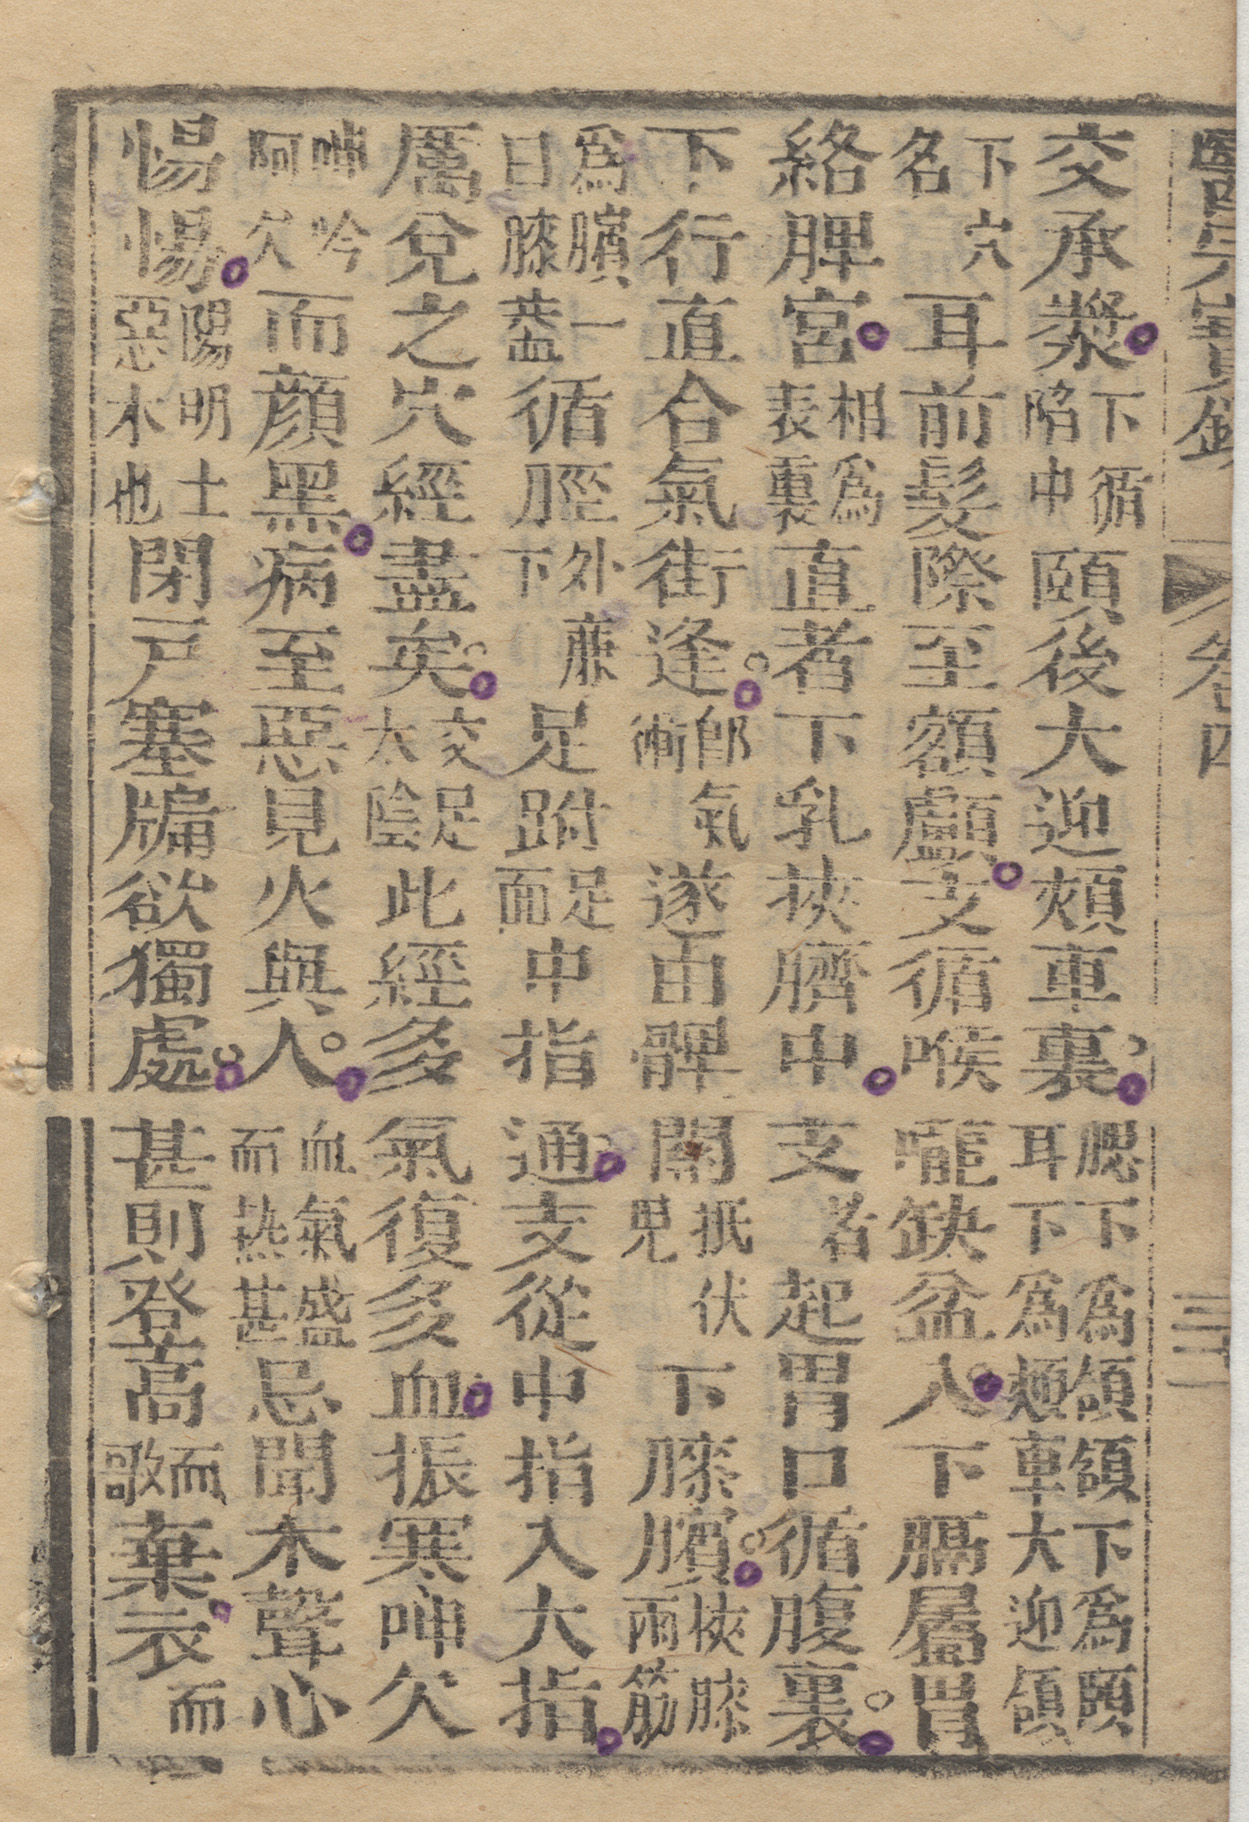 卷四
交承漿下循陷中頤後大迎頰車裏腮下為頷頷下為頤耳下為頰車大迎頷
下穴名耳前髮際至額顱支循喉嚨缺盆入下膈屬胃
絡脾宮相為表裏直者下乳挾臍中支者起胃口循腹裏
下行直合氣街逢卽氣衝遂由髀關抵伏兎下膝臏挾膝兩筋
為臏一曰膝葢循脛外廉下足跗足面中指通支從中指入大指
厲兌之穴經盡矣交足太陰此經多氣復多血振寒呻欠
呻吟阿欠而顏黑病至惡見火與人血氣盛而热甚忌聞木聲心
惕惕陽明土惡木也閉戶塞牖欲獨處甚則登高而歌棄衣而